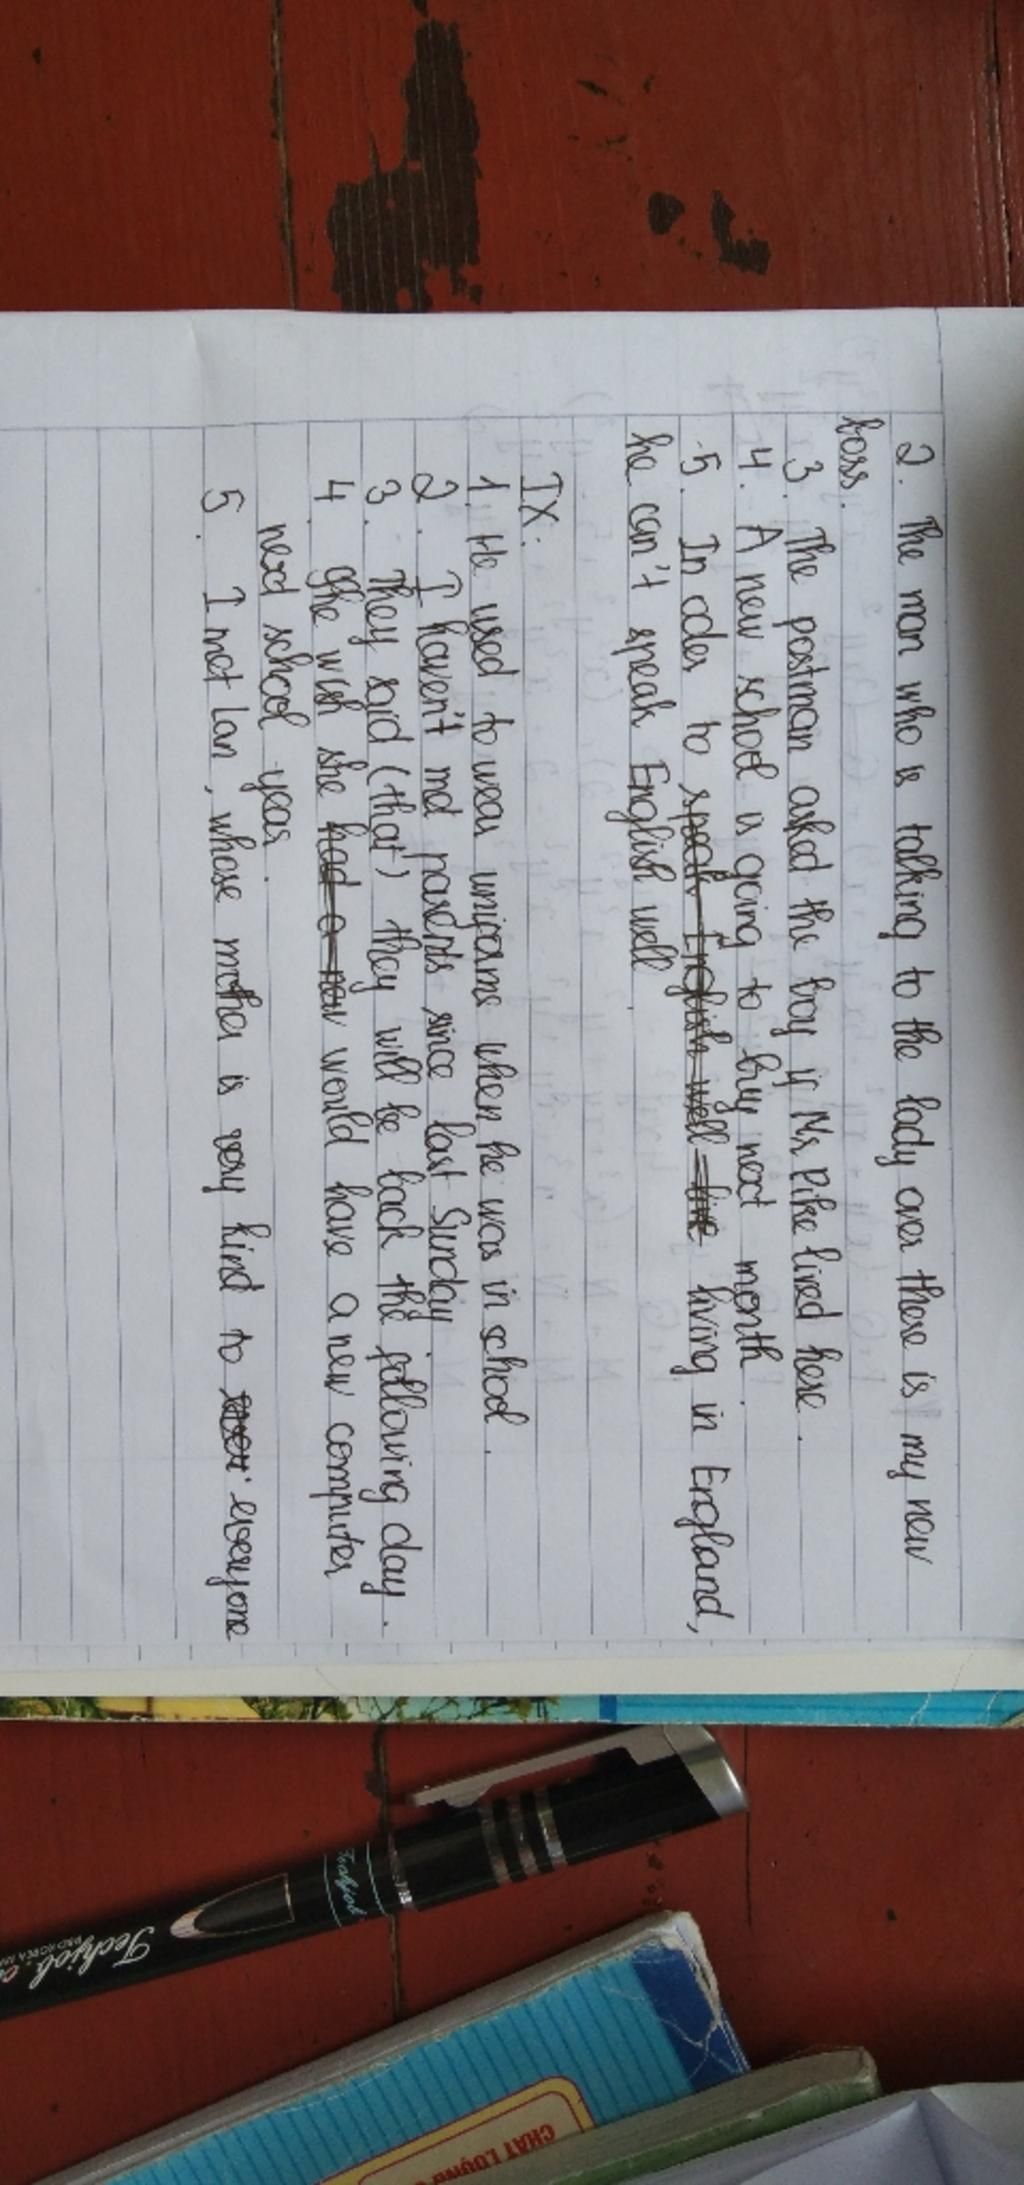 2. The man who is talking to the lady over there is my new
boss.
3. The postman asked the boy if Mr Pike lived here.
4. A new school is going to buy next month.
5. In oder to speak English well live living in England,
he can't speak English well.
IX.
1. He used to wear uniforms when he was in school.
2. I haven't met parents since last Sunday.
3. They said (that) they will be back the following day.
4. She wish she had a new would have a new computer
next school year.
5. I met Lan, whose mother is very kind to everyone
Techjob
Techjob
CHẤT LƯỢNG